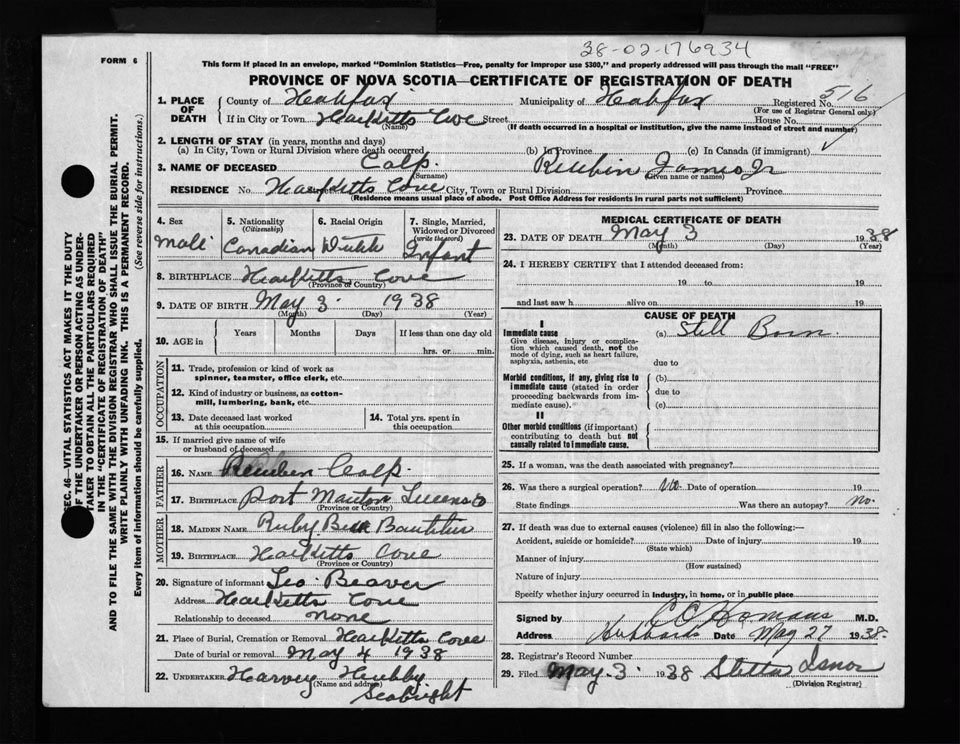 38-02-176934
FORM 6
This form if placed in an envelope, marked "Dominion Statistics—Free, penalty for improper use $300," and properly addressed will pass through the mail "FREE"
PROVINCE OF NOVA SCOTIA—CERTIFICATE OF REGISTRATION OF DEATH
1. PLACE OF DEATH
County of Halifax Municipality of Halifax Registered No. 516
(For use of Registrar General only)
If in City or Town Hacketts Cove Street House No.
(Name) (If death occurred in a hospital or institution, give the name instead of street and number)
2. LENGTH OF STAY (in years, months and days)
(a) In City, Town or Rural Division where death occurred (b) In Province (c) In Canada (if immigrant)
3. NAME OF DECEASED Colp. Reubin James Jr
(Surname) (Given name or names)
RESIDENCE No. Hacketts Cove City, Town or Rural Division Province
(Residence means usual place of abode. Post Office Address for residents in rural parts not sufficient)
4. Sex 5. Nationality (Citizenship) 6. Racial Origin 7. Single, Married, Widowed or Divorced (write the word)
Male Canadian Infant
8. BIRTHPLACE Hacketts Cove
(Province or Country)
9. DATE OF BIRTH May 3. 1938
(Month) (Day) (Year)
10. AGE in Years Months Days If less than one day old
hrs. or min.
OCCUPATION
11. Trade, profession or kind of work as spinner, teamster, office clerk, etc.
12. Kind of industry or business, as cotton-mill, lumbering, bank, etc.
13. Date deceased last worked at this occupation 14. Total yrs. spent in this occupation
15. If married give name of wife or husband of deceased
FATHER
16. NAME Reuben Colp.
17. BIRTHPLACE Port Mouton Queens Co
(Province or Country)
MOTHER
18. MAIDEN NAME Ruby
19. BIRTHPLACE Hacketts Cove
(Province or Country)
20. Signature of informant Leo Beaver
Address Hacketts Cove
Relationship to deceased none
21. Place of Burial, Cremation or Removal Hacketts Cove
Date of burial or removal May 4 1938
22. UNDERTAKER Harvey Hubley
(Name and address)
Seabright
MEDICAL CERTIFICATE OF DEATH
23. DATE OF DEATH May 3 1938
(Month) (Day) (Year)
24. I HEREBY CERTIFY that I attended deceased from:
19 to 19
and last saw h alive on 19
CAUSE OF DEATH
I
Immediate cause (a) Still Born.
Give disease, injury or complication which caused death, not the mode of dying, such as heart failure, asphyxia, asthenia, etc
due to
Morbid conditions, if any, giving rise to immediate cause (stated in order proceeding backwards from immediate cause).
(b)
due to
(c)
II
Other morbid conditions (if important) contributing to death but not causally related to immediate cause.
25. If a woman, was the death associated with pregnancy?
26. Was there a surgical operation? No. Date of operation 19
State findings Was there an autopsy? no.
27. If death was due to external causes (violence) fill in also the following:—
Accident, suicide or homicide? Date of injury 19
(State which)
Manner of injury
(How sustained)
Nature of injury
Specify whether injury occurred in Industry, in home, or in public place
Signed by M.D.
Address Hubbards Date May 27 1938.
28. Registrar's Record Number
29. Filed May. 3 1938 Stella Isnor
(Division Registrar)
SEC. 46—VITAL STATISTICS ACT MAKES IT THE DUTY
OF THE UNDERTAKER OR PERSON ACTING AS UNDER-
TAKER TO OBTAIN ALL THE PARTICULARS REQUIRED
IN THE "CERTIFICATE OF REGISTRATION OF DEATH"
AND TO FILE THE SAME WITH THE DIVISION REGISTRAR WHO SHALL ISSUE THE BURIAL PERMIT.
WRITE PLAINLY WITH UNFADING INK. THIS IS A PERMANENT RECORD.
Every item of information should be carefully supplied. (See reverse side for instructions.)